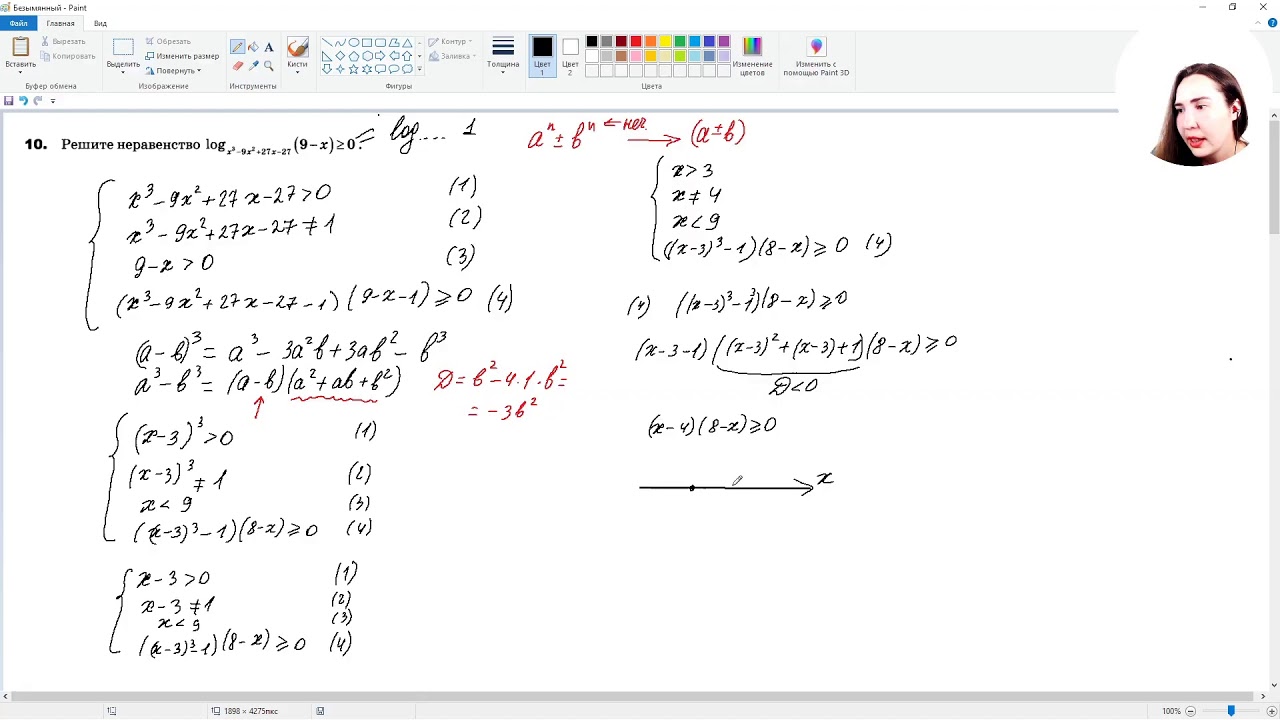 Безымянный - Paint
Файл
Главная
Вид
Вставить
Вырезать
Копировать
Буфер обмена
Выделить
Обрезать
Изменить размер
Повернуть
Изображение
Инструменты
Кисти
Контур
Заливка
Фигуры
Толщина
Цвет 1
Цвет 2
Изменение цветов
Цвета
Изменить с помощью Paint 3D
10. Решите неравенство log_{x³−9x²+27x−27}(9−x)≥0.
= log.... 1
aⁿ ± bⁿ ← неч. → (a ± b)
x³ − 9x² + 27x − 27 > 0 (1)
x³ − 9x² + 27x − 27 ≠ 1 (2)
9 − x > 0 (3)
(x³ − 9x² + 27x − 27 − 1)(9 − x − 1) ≥ 0 (4)
(a − b)³ = a³ − 3a²b + 3ab² − b³
a³ − b³ = (a − b)(a² + ab + b²)
D = b² − 4·1·b² =
= −3b²
(x − 3)³ > 0 (1)
(x − 3)³ ≠ 1 (2)
x < 9 (3)
((x − 3)³ − 1)(8 − x) ≥ 0 (4)
x − 3 > 0 (1)
x − 3 ≠ 1 (2)
x < 9 (3)
((x − 3)³ − 1)(8 − x) ≥ 0 (4)
x > 3
x ≠ 4
x < 9
((x − 3)³ − 1)(8 − x) ≥ 0 (4)
(4) ((x − 3)³ − 1³)(8 − x) ≥ 0
(x − 3 − 1)((x − 3)² + (x − 3) + 1)(8 − x) ≥ 0
D < 0
(x − 4)(8 − x) ≥ 0
x
1898 × 4275пкс
100%